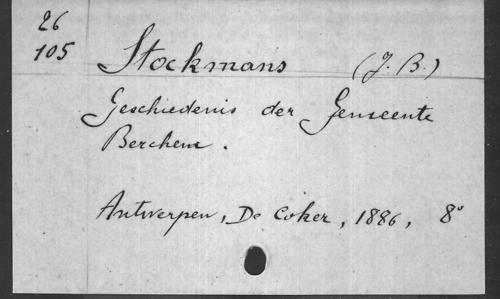 26
105
Stockmans (J. B.)
Geschiedenis der Gemeente
Berchem.
Antwerpen, De Coker, 1886, 8°